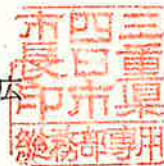 三重県
四日市
市長印
総務部専用
広